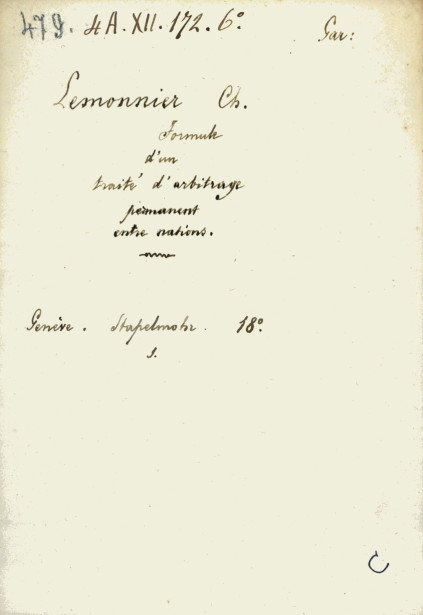 479. 4 A. XII. 172. 6° Gar:
Lemonnier Ch.
Formule
d'un
traité d'arbitrage
permanent
entre nations.
Genève. Stapelmohr. 18°.
1.
C